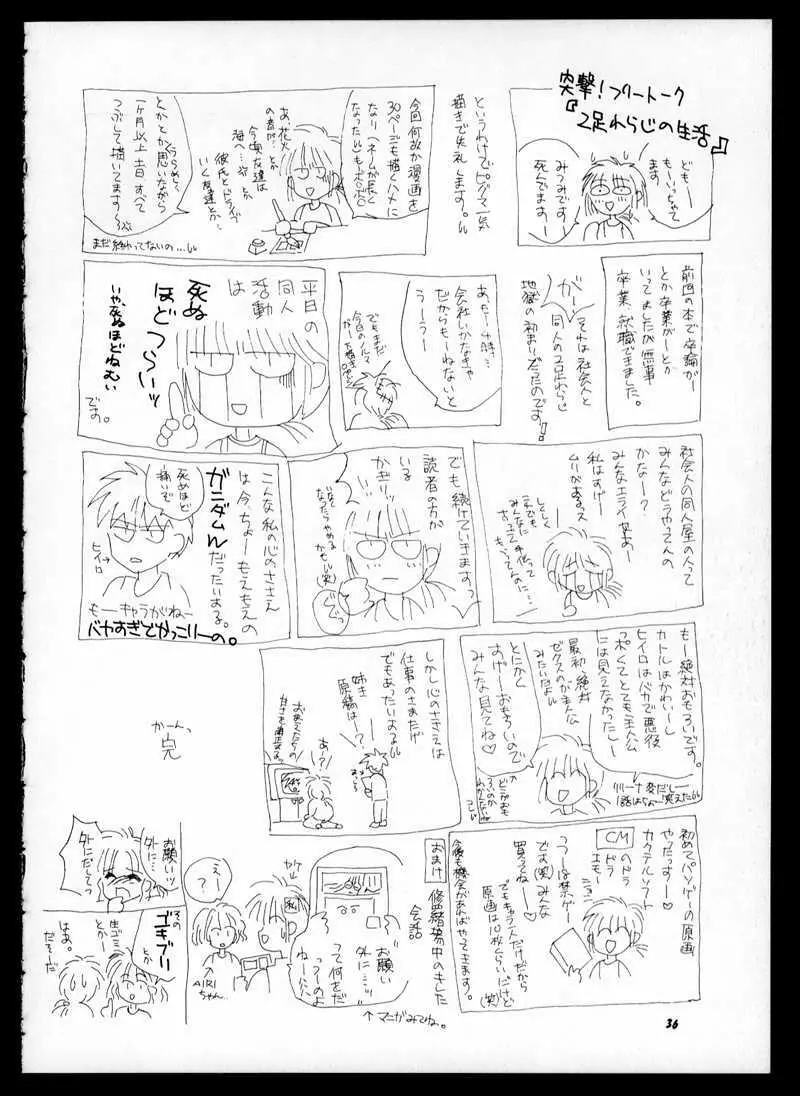 突撃!フリートーク
『2足わらじの生活』
どもー
もーいっちゃて
ます
みつみです
死んでますー
というわけで
描きで失礼します。
今回何故か漫画を
30ページも描くハメに
なり
ネームが長く
なったりもボロボロ
あ、花火
の音が…とか
今頃友達は
海へ…とか
彼氏とドライブ
いく友達とか…
とかとか思いながら
一ヶ月以上土日すべて
つぶして描いてます〜
まだ終わってないの…
前回の本で卒論が
とか卒業がーとか
いってましたが無事
卒業、就職できました。
がーっ
それは社会人と
同人の2足わらじ
地獄の初まりだったのです!
あっもー4時…
会社いかなきゃ
だからもーねないと
うーう?
でもまだ
今日のノルマ
が
平日の
同人
活動
は
死ぬ
ほど
つらいッ
いや、死ぬほどねむい
です。
社会人の同人屋の人て
みんなどうやってんの
かなー?
みんなエライなあー
私はすげー
ムリがあるっス
しくしく
これでも
みんなに
手伝って
もらってんのに…
でも続けていきますっ
読者の方が
いる
かぎりッ
いなく
なったらやめる
かもしい(笑)
こんな私の心のささえ
は今ちょーもえもえの
ガンダムW
だったいする。
死ぬほど
痛いぞ
ヒイロ
もーキャラがいねー
バカすぎでかっこりーの。
もー絶対おもろいです。
カトルはかわいーし
ヒイロはバカで悪役
っぽくてとても主人公
には見えなかったしー
最初絶対
ゼクスのが主人公
みたいだよ
とにかく
すげーおもろいので
みんな見てね♡
リリーナ変だしー
1話はちょー笑えた
どこがおも
ろいのか
わかんないね
しかし心のささえは
仕事のさまたげ
でもあったりする
姉き
原稿は?
あー?
かーんっ
完
初めてパソゲーの原画
やったっすー♡
カクテルソフト
CM
のドラ
ドラ
エモー
ううーは禁ゲー
です(笑)みんな
買ってねー♡
でもキャラ一人だけだから
原画は10枚くらいだけど
(笑)
今後も機会があればやってきます。
おまけ
修羅場中のきした
会話
お願い
外に…ッ
って何をだ
っつーのよ
ねーハハ
↑マニがみてね。
私
えー
?
↑
AIRI
ちゃん
お願いッ
外に…
外にだしてっ
その
ゴキブリー
とか
生ゴミ
とかー
はあ。
だそーだ
36